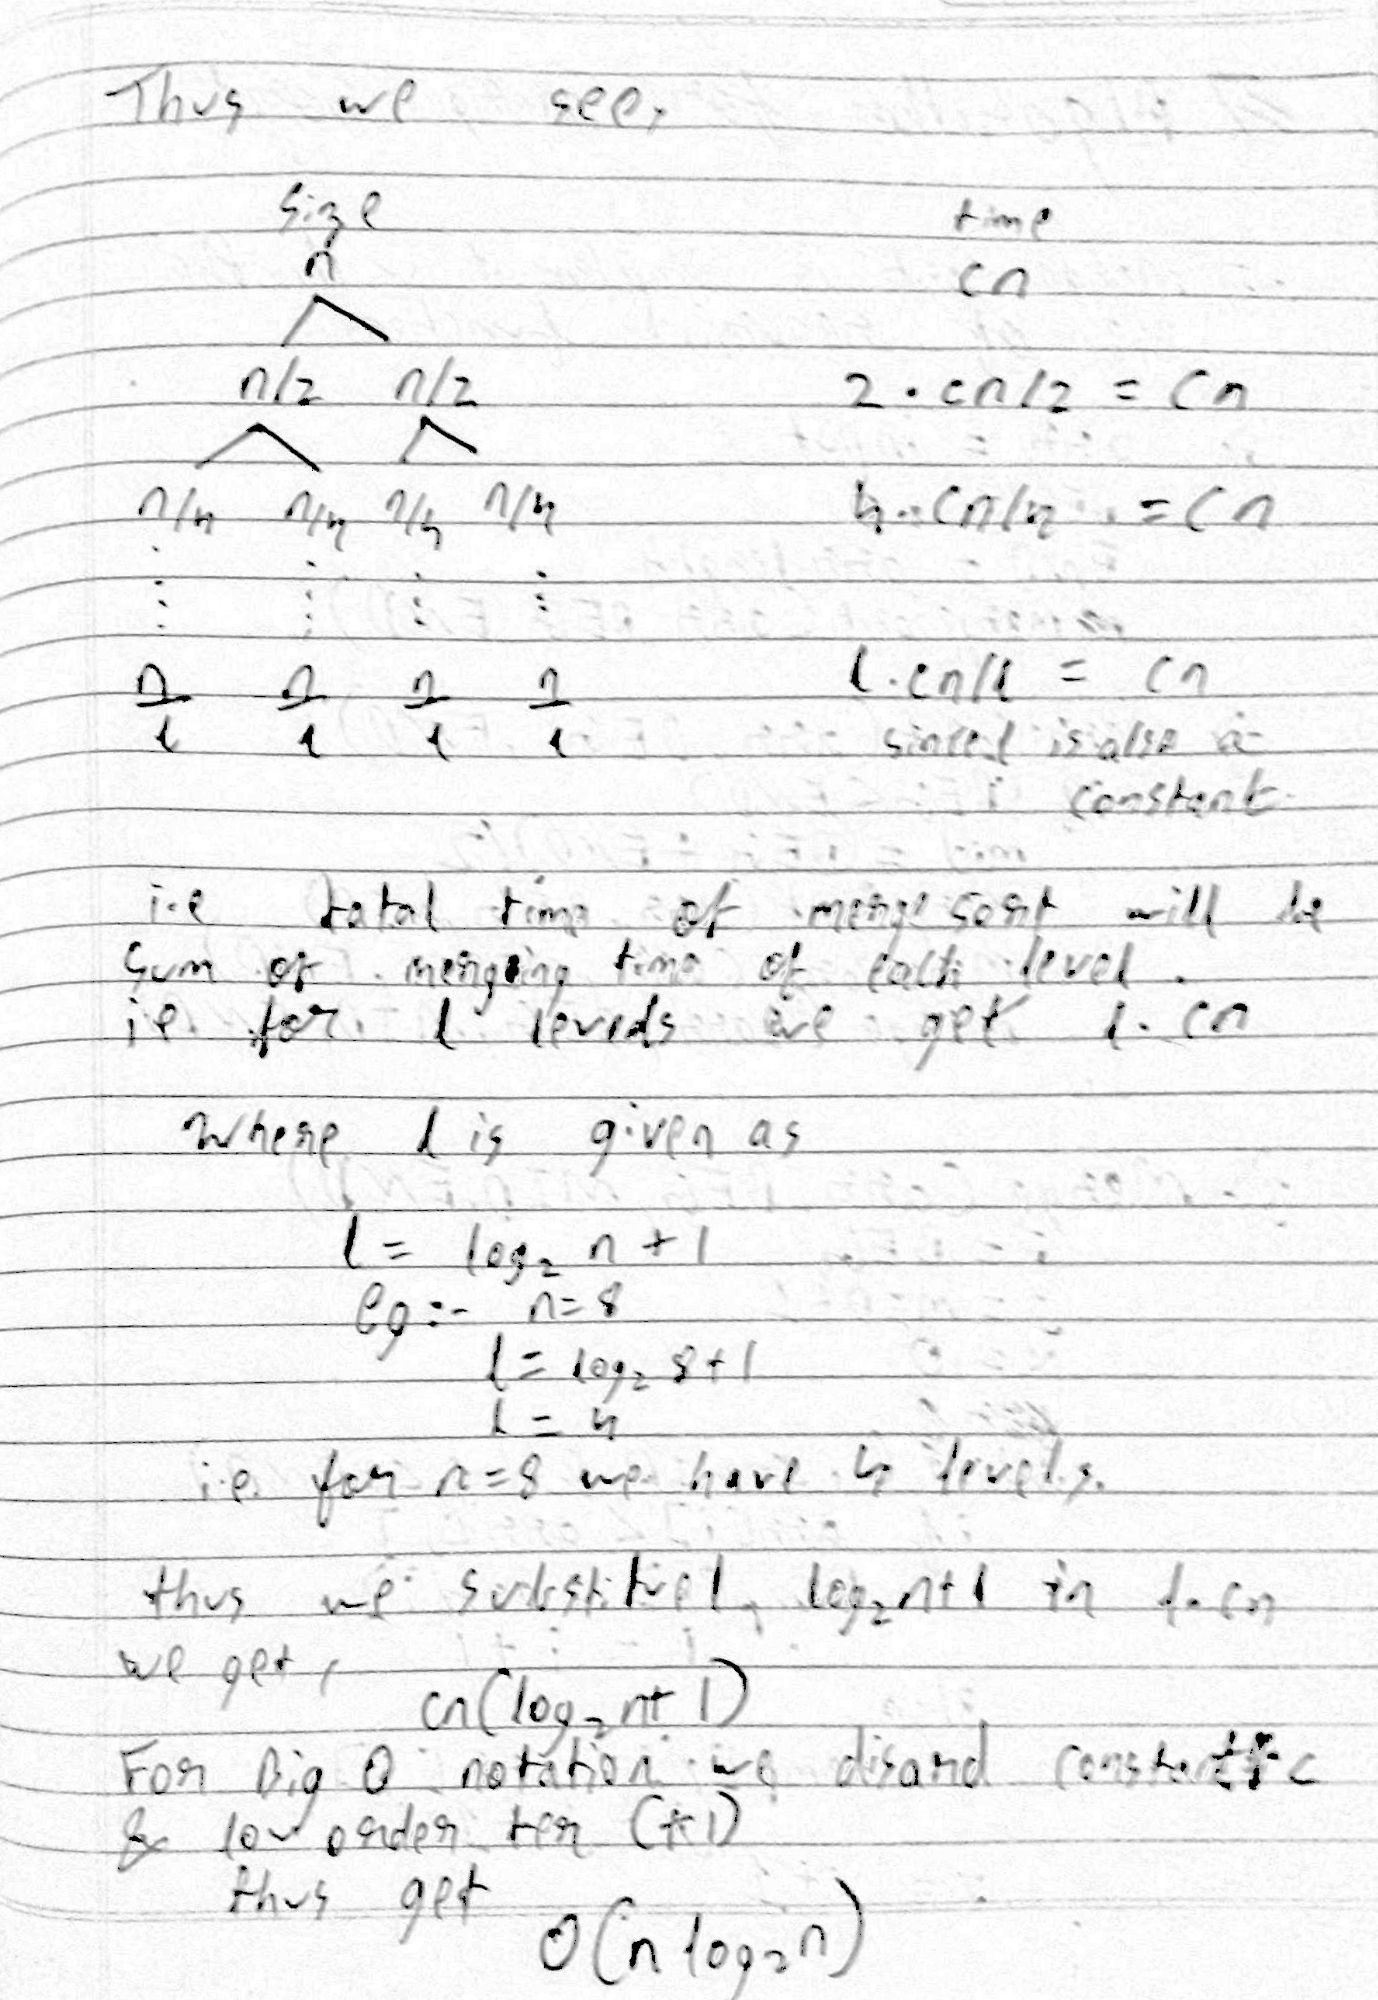 Thus we see,
size time
n cn
n/2 n/2 2 · cn/2 = cn
n/4 n/4 n/4 n/4 4 · cn/4 = cn
n/l n/l n/l n/l l · cn/l = cn
since l is also a
constant.
i.e total time of merge sort will be
sum of merging time of each level.
i.e. for l levels we get l · cn
Where l is given as
l = log₂ n + 1
eg :- n = 8
l = log₂ 8 + 1
l = 4
i.e. for n = 8 we have 4 levels.
thus we log₂n+1 in l · cn
we get,
cn(log₂n + 1)
For Big O notation we disard c
& low order ter (+1)
thus get
O(n log₂n)